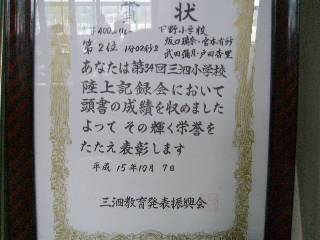 賞 状
400mリレー
下野小学校
第2位 1分02秒2
あなたは第34回三泗小学校
陸上記録会において
頭書の成績を収めました
よって その輝く栄誉を
たたえ表彰します
平成 15年10月 7日
三泗教育発表振興会